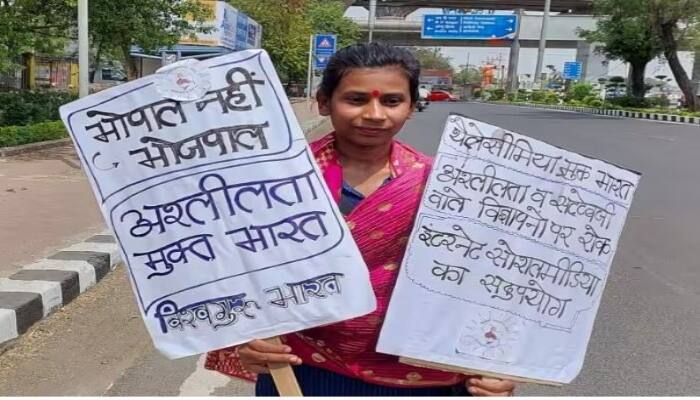 भोपाल नहीं
भोजपाल
अश्लीलता
मुक्त भारत
विश्वगुरू भारत
थैलेसीमिया मुक्त भारत
अश्लीलता व सट्टेबाजी
वाले विज्ञापनो पर रोक
इंटरनेट सोशलमीडिया
का सदुपयोग